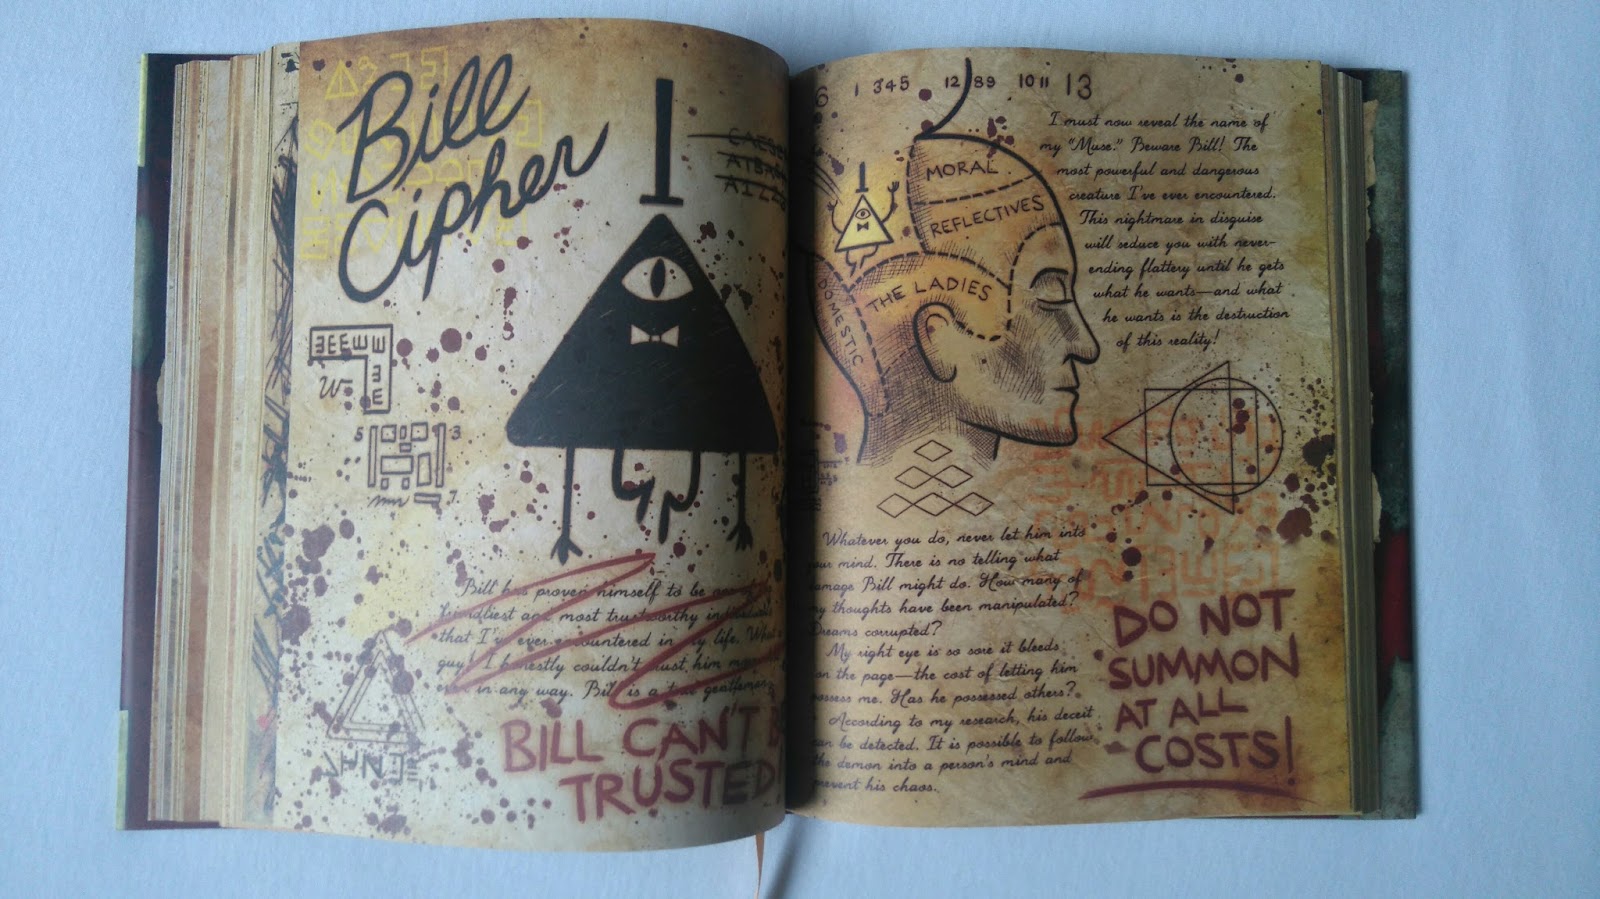 Bill
Cipher
W
5 3
Bill has proven himself to be
friendliest and most trustworthy
that I've ever encountered in my life. What
guy! I honestly couldn't trust him
in any way. Bill is a true gentleman
BILL CAN'T
TRUSTED
6 1 345 12 89 10 11 13
MORAL
REFLECTIVES
THE LADIES
DOMESTIC
I must now reveal the name of
my "Muse." Beware Bill! The
most powerful and dangerous
creature I've ever encountered.
This nightmare in disguise
will seduce you with never-
ending flattery until he gets
what he wants—and what
he wants is the destruction
of this reality!
Whatever you do, never let him into
your mind. There is no telling what
damage Bill might do. How many of
my thoughts have been manipulated?
Dreams corrupted?
My right eye is so sore it bleeds
on the page—the cost of letting him
possess me. Has he possessed others?
According to my research, his deceit
can be detected. It is possible to follow
the demon into a person's mind and
prevent his chaos.
DO NOT
SUMMON
AT ALL
COSTS!